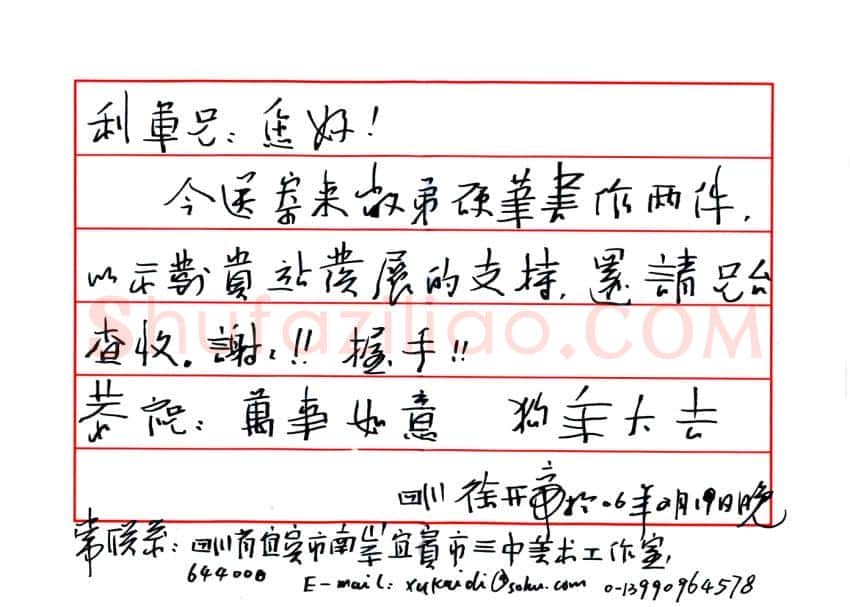 利軍兄：您好！
今送寄来敝弟硬筆書作两件，
以示對貴站發展的支持，還請兄台
查收。謝谢！！ 握手！！
恭祝：萬事如意 狗年大吉
四川 徐开帝於06年2月19日晚
常联系：四川省宜宾市南岸宜賓市三中美术工作室，
644000 E-mail: xukaidi@sohu.com 0-13990964578
Shufaziliao.COM